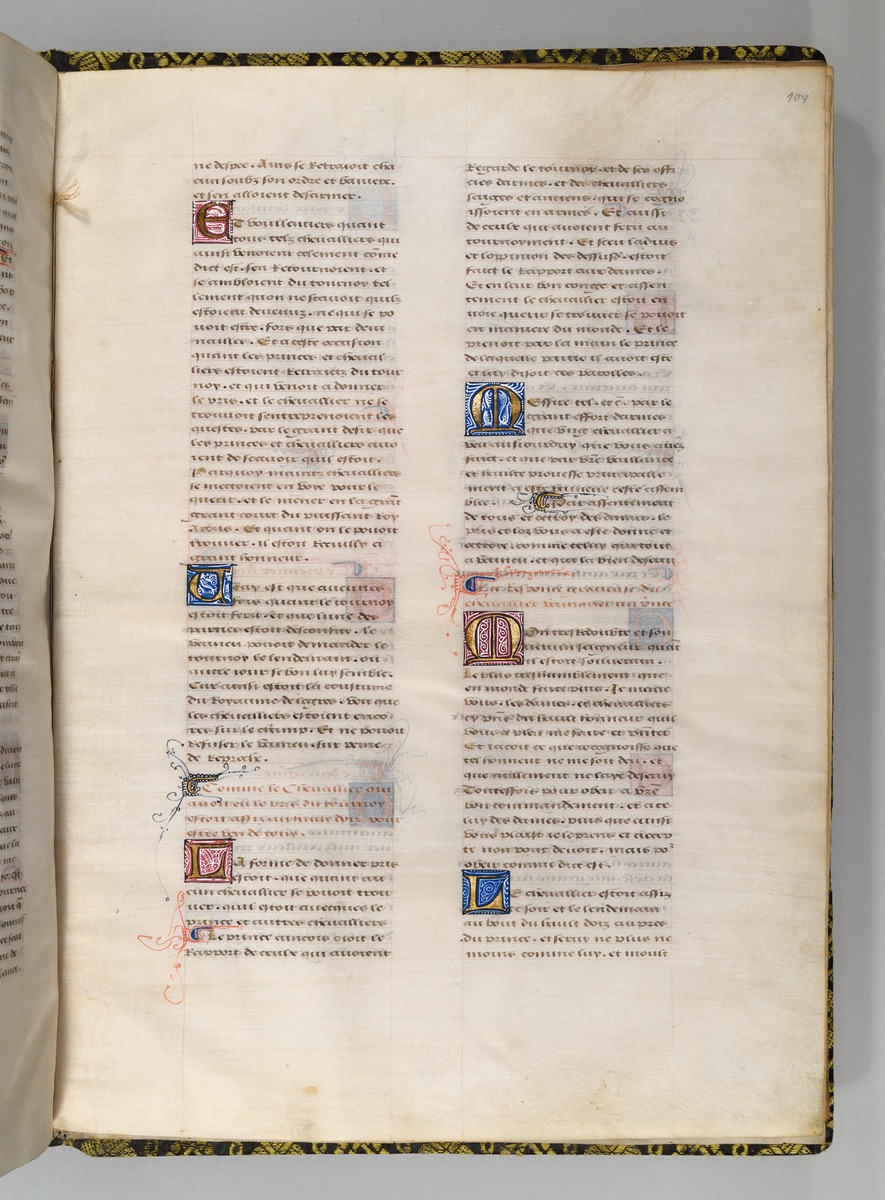 104
ne despee. Ains se retraioit cha
cun soubz son ordre et baniere.
et sen alloient desarmer.
Et voullentiers quant
tous telz chevalliers qui
ainsi venoient celement cōme
dict est. sen retournoient. et
se ambloient du tournoy tel
lement quon ne scavoit quilz
estoient devenuz. ne qui se po
voit estre. fors que par devi
nailles. Et a ceste occasion
quant les princes et cheval
liers estoient retraictz du tour
noy. et qui venoit a donner
le pris. et le chevallier ne se
trouvoit sentreprenoient les
questes. par le grant desir que
les princes et chevalliers avo
ient de scavoir quil estoit.
Parquoy maintz chevalliers
se mettoient en voye pour le
querir. et le mener en la grāt
grant court du puissant Roy
Artus. Et quant on le povoit
trouver. il estoit recuilly a
grant honneur.
Vray est que aucunes
fois quant le tournoy
estoit feru. et que lune des
parties estoit desconfite. le
vaincu povoit demander le
tournoy le lendemain. ou
autre iour se bon luy semble.
Car ainsi estoit la coustume
du Royaume de logres. veu que
les chevalliers estoient encō
tres sur le champ. Et ne povoit
refuser le vaincu. sur peine
de reproche.
Comme le Chevallier qui
avoit eu le pris du tournoy
estoit assiz au hault doiz pour
estre veu de tous.
La forme de donner pris
estoit. que quant au
cun chevallier se povoit trou
ver. quil estoit avecques le
prince et autres chevalliers
Le prince ancois oioit le
rapport de ceulx qui avoient
Regarde le tournoy. et de ses offi
ciers darmes. et des chevalliers
saiges et anciens. qui se cogno
issoient en armes. Et aussi
de ceulx qui avoient feru au
tournoyment. Et sceu ladvis
et loppinion des dessusd. estoit
faict le rapport aux dames.
Et en leur bon congie et assen
tement le chevallier estoit en
voie querir se trouver se povoit
en maniere du monde. Et le
prenoit par la main le prince
de laquelle partie il avoit este
et luy disoit ces parolles.
Messire tel. et c̄. par le
grant effort darmes
que ung chevallier a
peu auiourduy que vous avez
faict. et que par vr̄e vaillance
et haulte prouesse principalle
ment a este vaincue ceste assem
blee. Par assentement
de tous et ottroy des dames. le
pris et loz vous a este donne et
ottroye. comme celuy que tout
a vaincu. et qui la bien desservi
La responce gracieuse du
chevallier vainqueur au prince
Mon tres redoubte et sou
verain seigneur quāt
il estoit souverain.
Le plus treshumblement que
en monde scave plus. Je mercie
vous. les dames. et chevalliers
cy pn̄s du hault honneur quil
vous a pleu me faire et pn̄ter
Et iacoit ce que recognoisse que
tel honneur ne me soit deu. et
que nullement ne laye desservy
Touteffois pour obeir a vr̄e
bon commandement. et a ce
luy des dames. puis que ainsi
vous plaist ie le prens et accep
te non pour devoir. mais po᷑
obeir comme dict est.
Le chevallier estoit assiz
ce soir et le lendemain
au bout du hault doiz au pres
du prince. et servy ne plus ne
moins comme luy. et moult